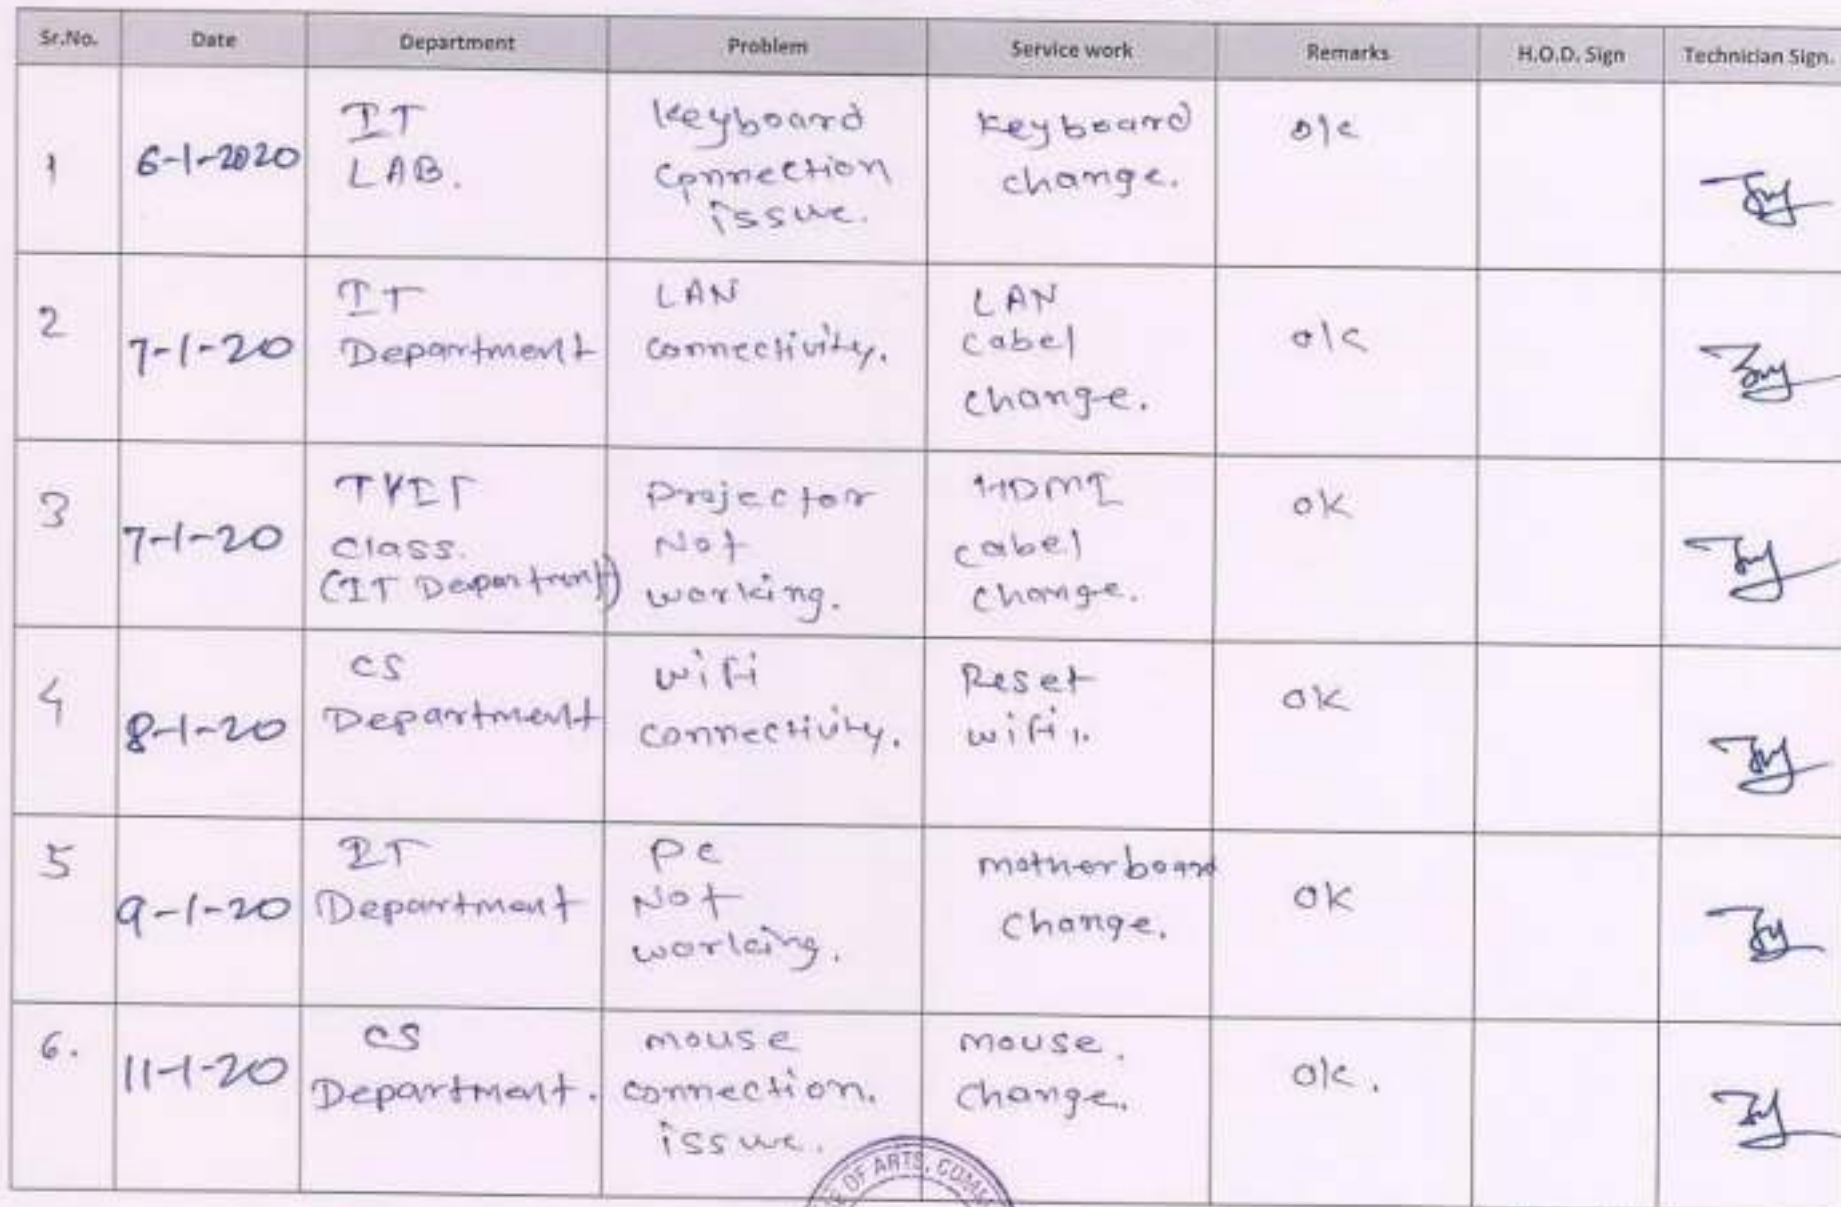 Sr.No. Date Department Problem Service work Remarks H.O.D. Sign Technician Sign.
1 6-1-2020 IT LAB. Keyboard connection issue. Keyboard change. ok
2 7-1-20 IT Department LAN connectivity. LAN cabel change. ok
3 7-1-20 TYIT Class. (IT Department) Projector Not working. HDMI cabel change. ok
4 8-1-20 CS Department wifi connectivity. Reset wifi. ok
5 9-1-20 IT Department PC Not working. motherboard change. ok
6. 11-1-20 CS Department. mouse connection. issue. mouse. change. ok.
OF ARTS, COMM